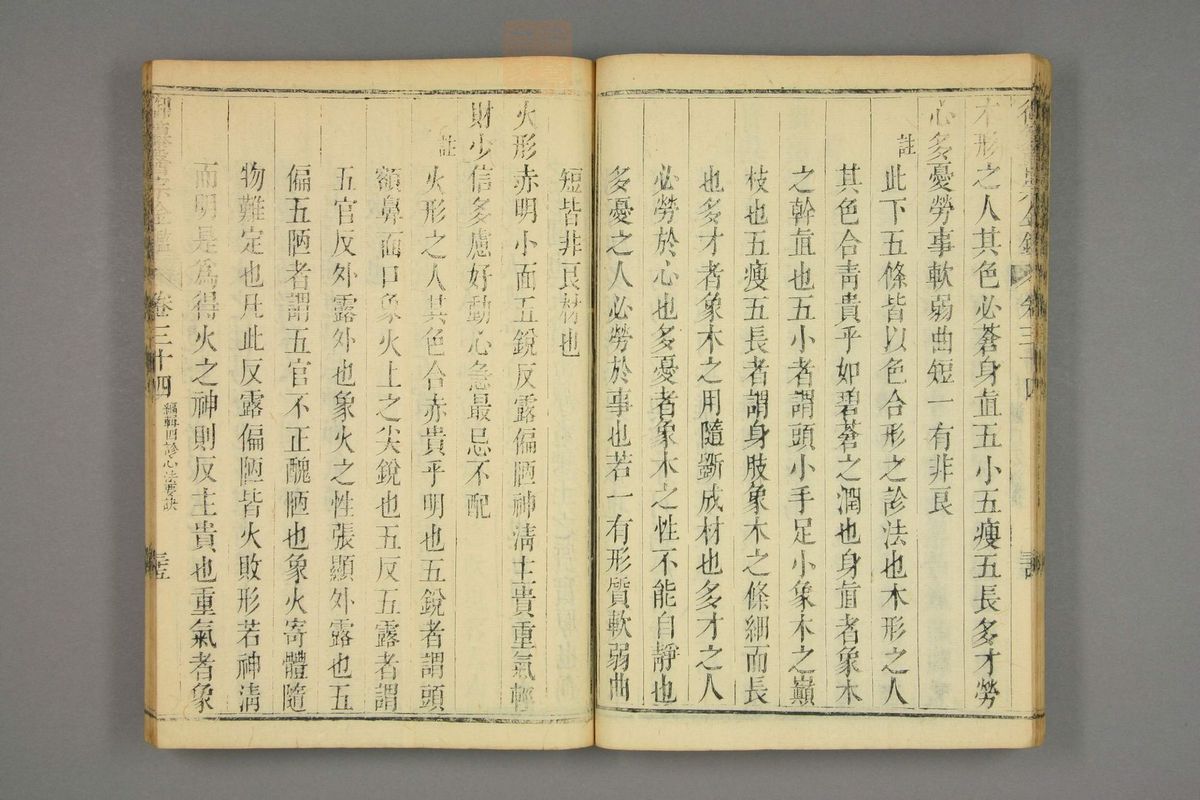 木形之人其色必蒼身直五小五瘦五長多才勞
心多憂勞事軟弱曲短一有非良
註
此下五條皆以色合形之診法也木形之人
其色合青貴乎如碧蒼之潤也身直者象木
之幹直也五小者謂頭小手足小象木之巔
枝也五瘦五長者謂身肢象木之條細而長
也多才者象木之用隨斲成材也多才之人
必勞於心也多憂者象木之性不能自靜也
多憂之人必勞於事也若一有形質軟弱曲
短皆非良材也
火形赤明小面五銳反露偏陋神清主貴重氣輕
財少信多慮好動心急最忌不配
註
火形之人其色合赤貴乎明也五銳者謂頭
額鼻面口象火上之尖銳也五反五露者謂
五官反外露外也象火之性張顯外露也五
偏五陋者謂五官不正醜陋也象火寄體隨
物難定也凡此反露偏陋皆火敗形若神清
而明是為得火之神則反主貴也重氣者象
卷三十四
編輯四診心法要訣